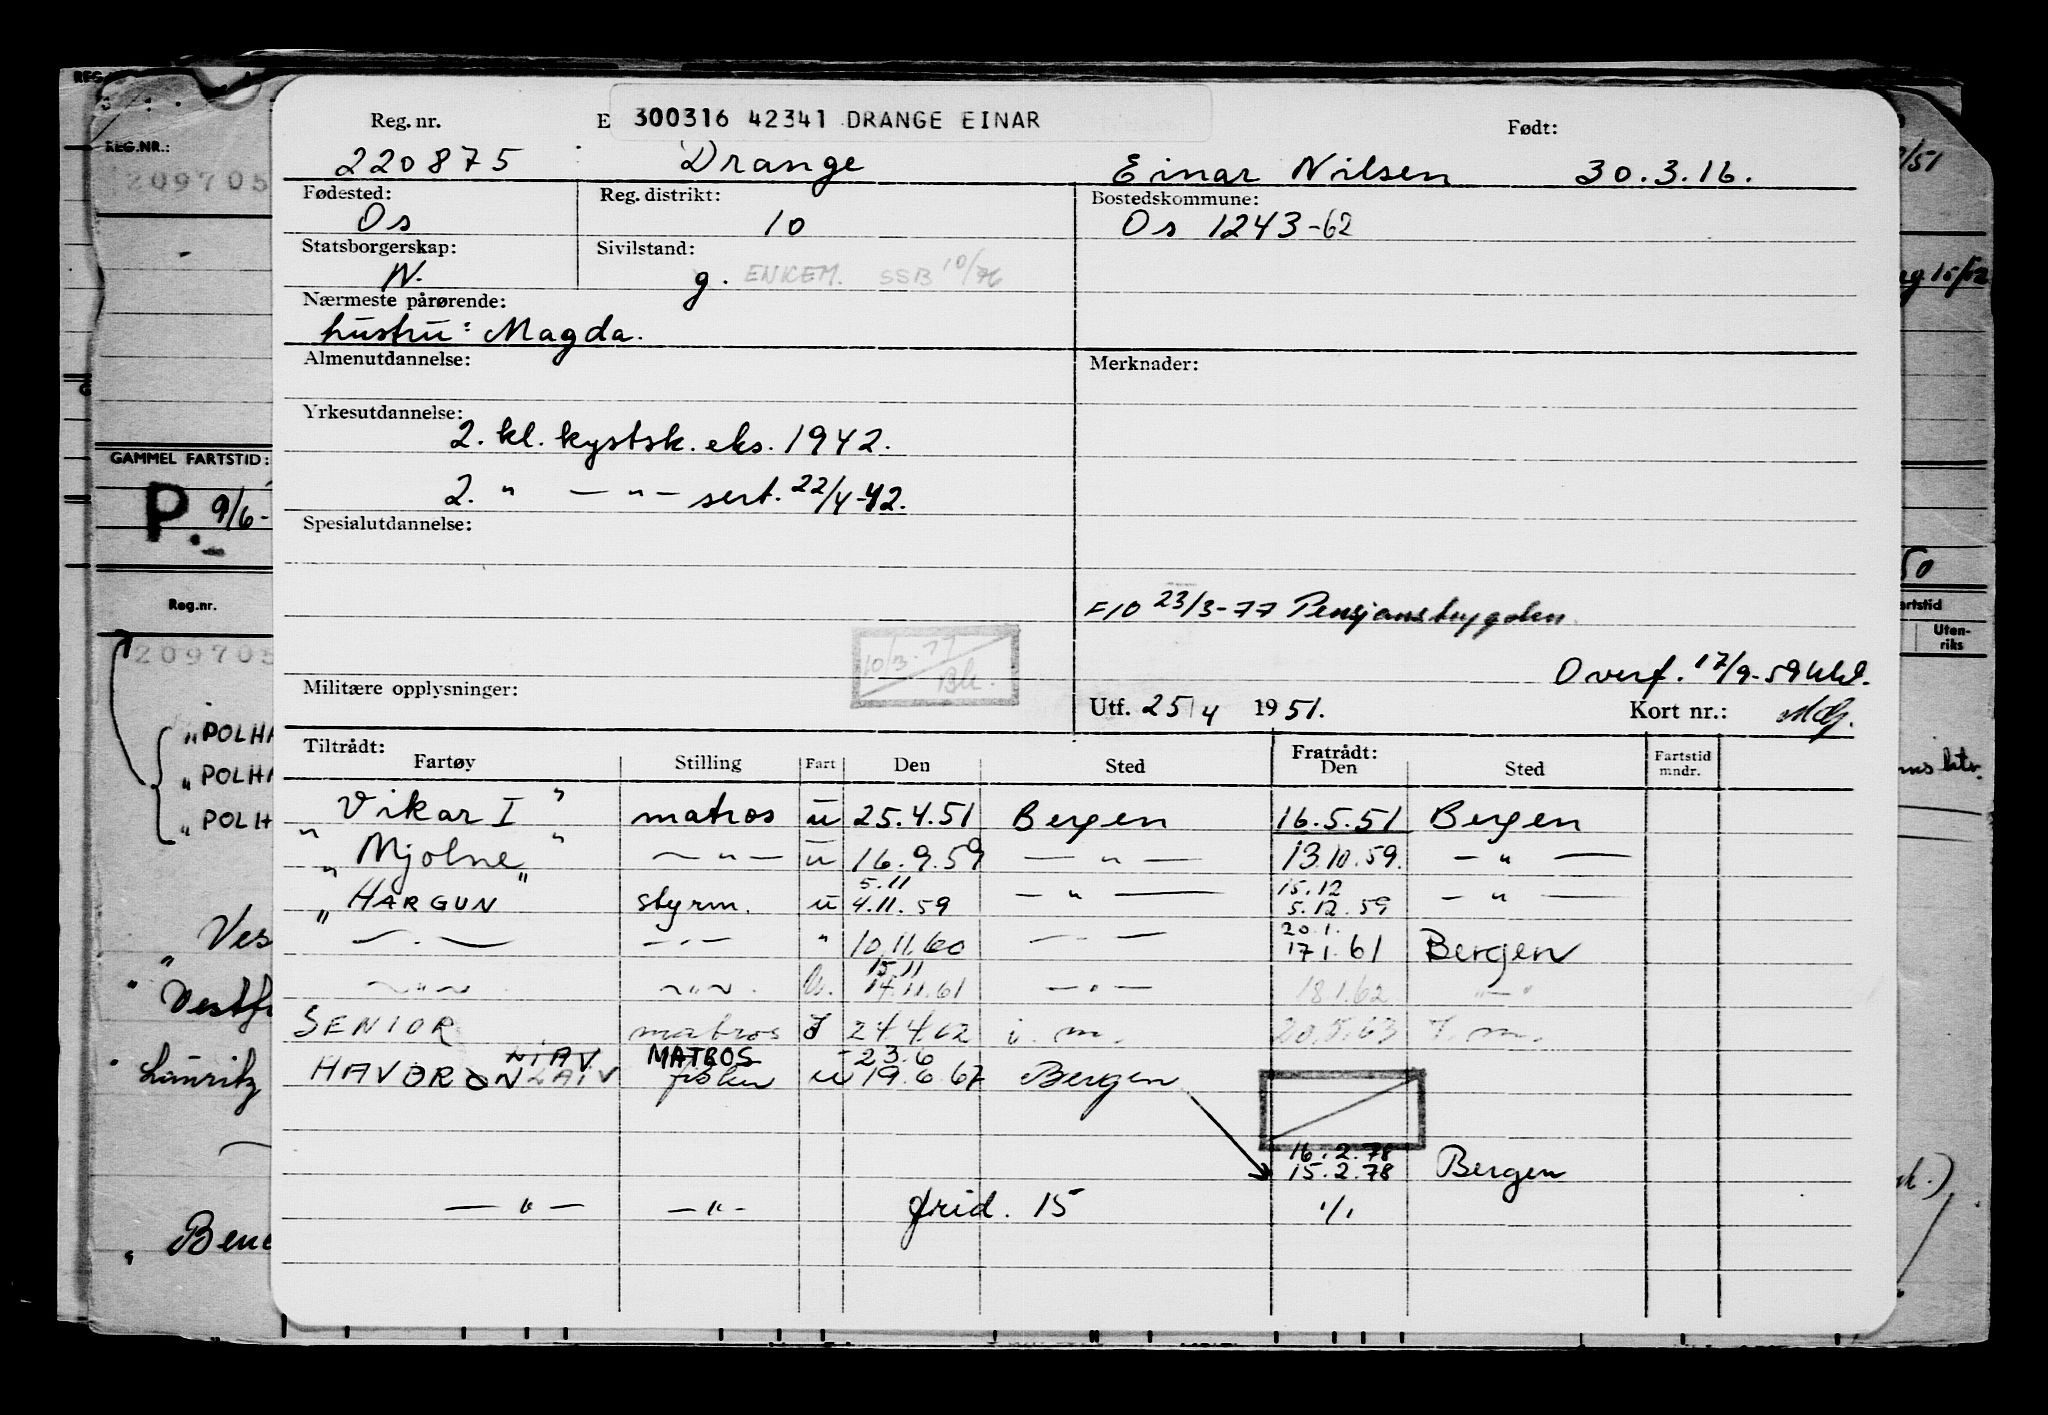 Reg. nr. E 300316 42341 DRANGE EINAR Født:
220875 Drange Einar Nilsen 30.3.16.
Fødested: Reg. distrikt: Bostedskommune:
Os 10 Os 1243-62
Statsborgerskap: Sivilstand:
N. g. ENKEM. SSB 10/76
Nærmeste pårørende:
hustru: Magda.
Almenutdannelse: Merknader:
Yrkesutdannelse:
2. kl. kystsk. eks. 1942.
2. " — " — sert. 22/4-42.
Spesialutdannelse:
FIO 23/3-77 Pensjonstrygden.
10/3-77
Bk.
Overf. 17/9-59
Militære opplysninger: Utf. 25/4 1951. Kort nr.:
Tiltrådt: Fratrådt:
Fartøy Stilling Fart Den Sted Den Sted Fartstid mndr.
"Vikar I" matros u 25.4.51 Bergen 16.5.51 Bergen
"Mjolne" — " — u 16.9.59 — " — 13.10.59. — " —
5.11 15.12
"HARGUN" styrm. u 4.11.59 — " — 5.12.59 — " —
20.1.
— " — — " — " 10.11.60 — " — 17.1.61 Bergen
15.11
— " — — " — 14.11.61 — " — 18.1.62 — " —
SENIOR matros I 24.4.62 i. m. 20.5.63 I. m.
LIAV MATROS 23.6
HAVDRØN LAIV fisker u 19.6.67 Bergen
16.2.78
15.2.78 Bergen
— " — — " — frid. 15 1/1
REG.NR.:
209705
GAMMEL FARTSTID:
P. 9/6-
Reg.nr.
209705
"POLHA
"POLHA
"POLH
"Ves
"Vestf
"Lauritz
"Bene
/51
15/52
50
artstid
Uten-
riks